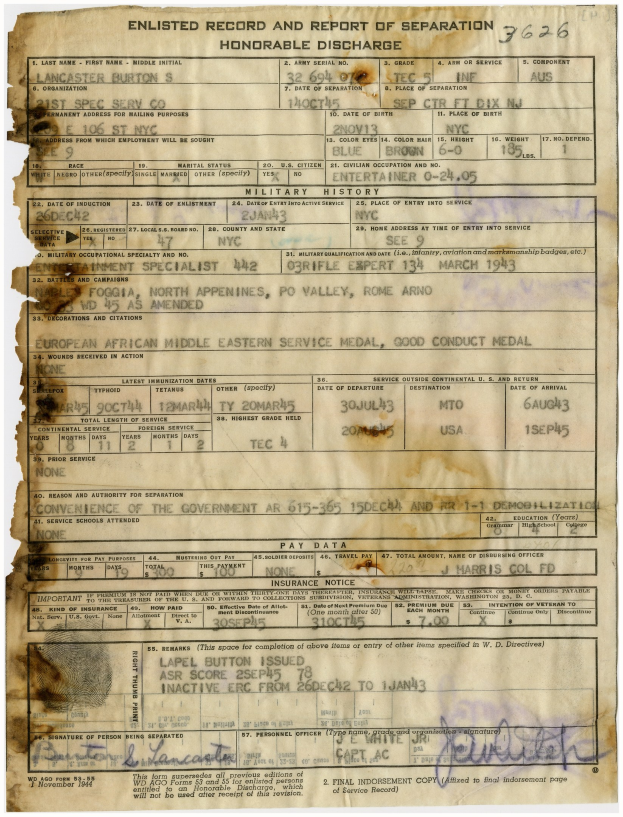 ENLISTED RECORD AND REPORT OF SEPARATION
HONORABLE DISCHARGE
3626
1. LAST NAME - FIRST NAME - MIDDLE INITIAL 2. ARMY SERIAL NO. 3. GRADE 4. ARM OR SERVICE 5. COMPONENT
LANCASTER BURTON S 32 694 TEC 5 INF AUS
6. ORGANIZATION 7. DATE OF SEPARATION 8. PLACE OF SEPARATION
21ST SPEC SERV CO 14OCT45 SEP CTR FT DIX NJ
PERMANENT ADDRESS FOR MAILING PURPOSES 10. DATE OF BIRTH 11. PLACE OF BIRTH
E 106 ST NYC 2NOV13 NYC
ADDRESS FROM WHICH EMPLOYMENT WILL BE SOUGHT 12. COLOR EYES 13. COLOR HAIR 15. HEIGHT 16. WEIGHT 17. NO. DEPEND.
SEE 9 BLUE BROWN 6-0 185 LBS. 1
18. RACE 19. MARITAL STATUS 20. U.S. CITIZEN 21. CIVILIAN OCCUPATION AND NO.
WHITE NEGRO OTHER (specify) SINGLE MARRIED OTHER (specify) YES NO ENTERTAINER 0-24.05
X X X
MILITARY HISTORY
22. DATE OF INDUCTION 23. DATE OF ENLISTMENT 24. DATE OF ENTRY INTO ACTIVE SERVICE 25. PLACE OF ENTRY INTO SERVICE
26DEC42 2JAN43 NYC
SELECTIVE SERVICE DATA 26. REGISTERED YES NO 27. LOCAL S.S. BOARD NO. 28. COUNTY AND STATE 29. HOME ADDRESS AT TIME OF ENTRY INTO SERVICE
47 NYC SEE 9
30. MILITARY OCCUPATIONAL SPECIALTY AND NO. 31. MILITARY QUALIFICATION AND DATE (i.e., infantry, aviation and marksmanship badges, etc.)
ENTERTAINMENT SPECIALIST 442 03RIFLE EXPERT 134 MARCH 1943
32. BATTLES AND CAMPAIGNS
NAPLES FOGGIA, NORTH APPENINES, PO VALLEY, ROME ARNO
WD 45 AS AMENDED
33. DECORATIONS AND CITATIONS
EUROPEAN AFRICAN MIDDLE EASTERN SERVICE MEDAL, GOOD CONDUCT MEDAL
34. WOUNDS RECEIVED IN ACTION
NONE
35. LATEST IMMUNIZATION DATES 36. SERVICE OUTSIDE CONTINENTAL U. S. AND RETURN
SMALLPOX TYPHOID TETANUS OTHER (specify) DATE OF DEPARTURE DESTINATION DATE OF ARRIVAL
MAR45 9OCT44 12MAR44 TY 20MAR45 30JUL43 MTO 6AUG43
20AUG45 USA 1SEP45
37. TOTAL LENGTH OF SERVICE 38. HIGHEST GRADE HELD
CONTINENTAL SERVICE FOREIGN SERVICE
YEARS MONTHS DAYS YEARS MONTHS DAYS
0 8 11 2 1 2 TEC 4
39. PRIOR SERVICE
NONE
40. REASON AND AUTHORITY FOR SEPARATION
CONVENIENCE OF THE GOVERNMENT AR 615-365 15DEC44 AND RR 1-1 DEMOBILIZATION
41. SERVICE SCHOOLS ATTENDED 42. EDUCATION (Years)
Grammar High School College
NONE 8 4 2
PAY DATA
LONGEVITY FOR PAY PURPOSES 44. MUSTERING OUT PAY 45. SOLDIER DEPOSITS 46. TRAVEL PAY 47. TOTAL AMOUNT, NAME OF DISBURSING OFFICER
YEARS MONTHS DAYS TOTAL THIS PAYMENT
9 19 $ 300 $ 100 NONE $ J HARRIS COL FD
INSURANCE NOTICE
IMPORTANT IF PREMIUM IS NOT PAID WHEN DUE OR WITHIN THIRTY-ONE DAYS THEREAFTER, INSURANCE WILL LAPSE. MAKE CHECKS OR MONEY ORDERS PAYABLE
TO THE TREASURER OF THE U. S. AND FORWARD TO COLLECTIONS SUBDIVISION, VETERANS ADMINISTRATION, WASHINGTON 25, D. C.
48. KIND OF INSURANCE 49. HOW PAID 50. Effective Date of Allotment Discontinuance 51. Date of Next Premium Due (One month after 50) 52. PREMIUM DUE EACH MONTH 53. INTENTION OF VETERAN TO
Nat. Serv. U.S. Govt. None Allotment Direct to V. A. Continue Continue Only Discontinue
X X 30SEP45 31OCT45 $ 7.00 X $
RIGHT THUMB PRINT
55. REMARKS (This space for completion of above items or entry of other items specified in W. D. Directives)
LAPEL BUTTON ISSUED
ASR SCORE 2SEP45 78
INACTIVE ERC FROM 26DEC42 TO 1JAN43
56. SIGNATURE OF PERSON BEING SEPARATED 57. PERSONNEL OFFICER (Type name, grade and organization - signature)
Burton S. Lancaster J E WHITE JR
CAPT AC
WD AGO FORM 53-55
1 November 1944
This form supersedes all previous editions of
WD AGO Forms 53 and 55 for enlisted persons
entitled to an Honorable Discharge, which
will not be used after receipt of this revision.
2. FINAL INDORSEMENT COPY (Affixed to final indorsement page
of Service Record)